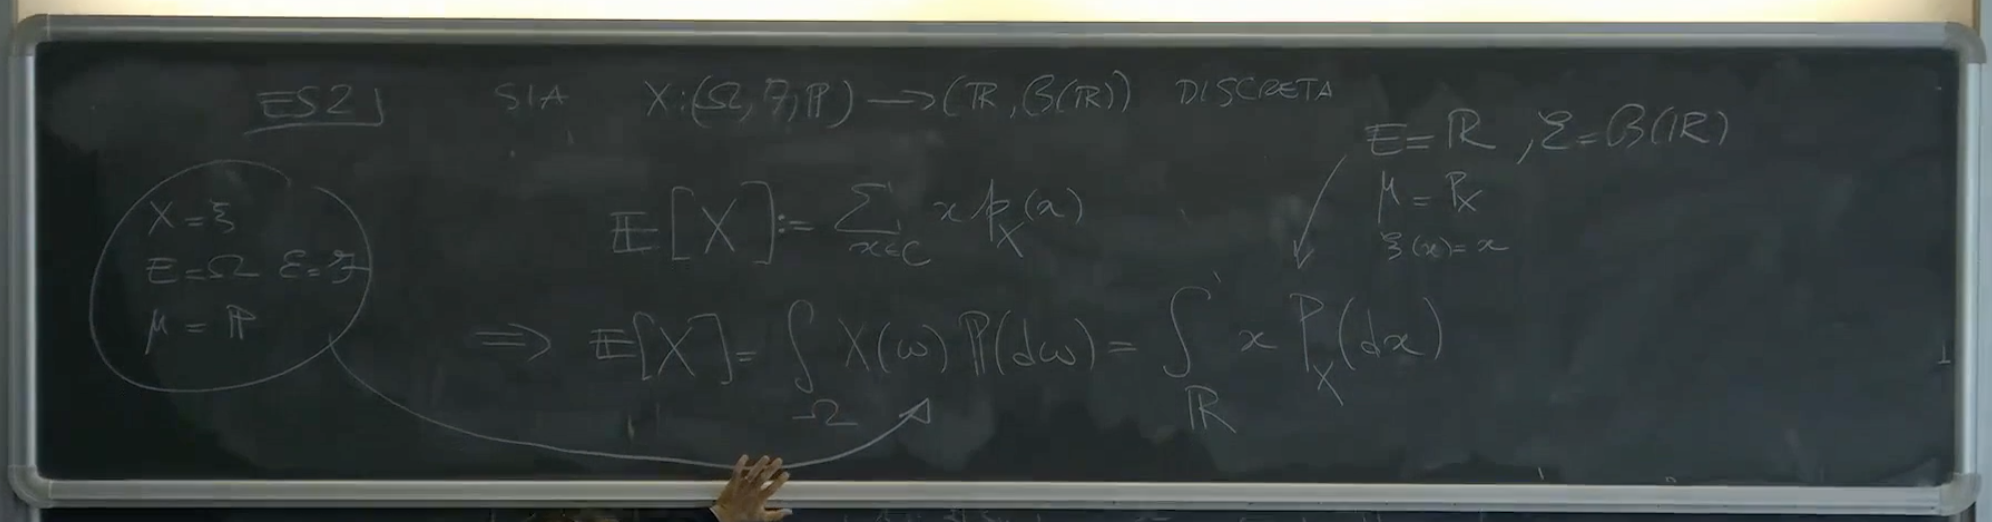 ES2] SIA X:(Ω, ℱ, ℙ) → (ℝ, ℬ(ℝ)) DISCRETA
E=ℝ, ℰ=ℬ(ℝ)
μ = P_X
ξ(x)=x
X=ξ
E=Ω ℰ=ℱ
μ = ℙ
𝔼[X] := ∑_{x∈C} x p_X(x)
⇒ 𝔼[X] = ∫_Ω X(ω) ℙ(dω) = ∫_ℝ x P_X(dx)